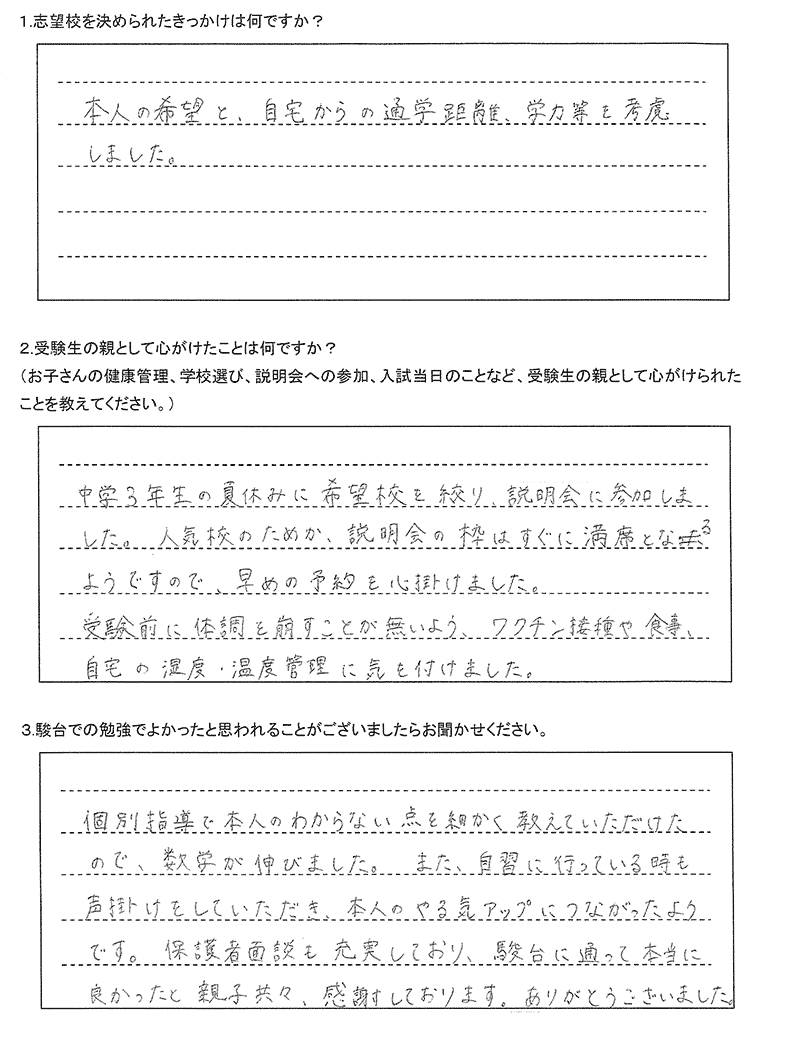 1.志望校を決められたきっかけは何ですか？
本人の希望と、自宅からの通学距離、学力等を考慮
しました。
2.受験生の親として心がけたことは何ですか？
（お子さんの健康管理、学校選び、説明会への参加、入試当日のことなど、受験生の親として心がけられた
ことを教えてください。）
中学3年生の夏休みに希望校を絞り、説明会に参加しま
した。人気校のためか、説明会の枠はすぐに満席となる
ようですので、早めの予約を心掛けました。
受験前に体調を崩すことが無いよう、ワクチン接種や食事、
自宅の湿度・温度管理に気を付けました。
3.駿台での勉強でよかったと思われることがございましたらお聞かせください。
個別指導で本人のわからない点を細かく教えていただけた
ので、数学が伸びました。また、自習に行っている時も
声掛けをしていただき、本人のやる気アップにつながったよう
です。保護者面談も充実しており、駿台に通って本当に
良かったと親子共々、感謝しております。ありがとうございました。